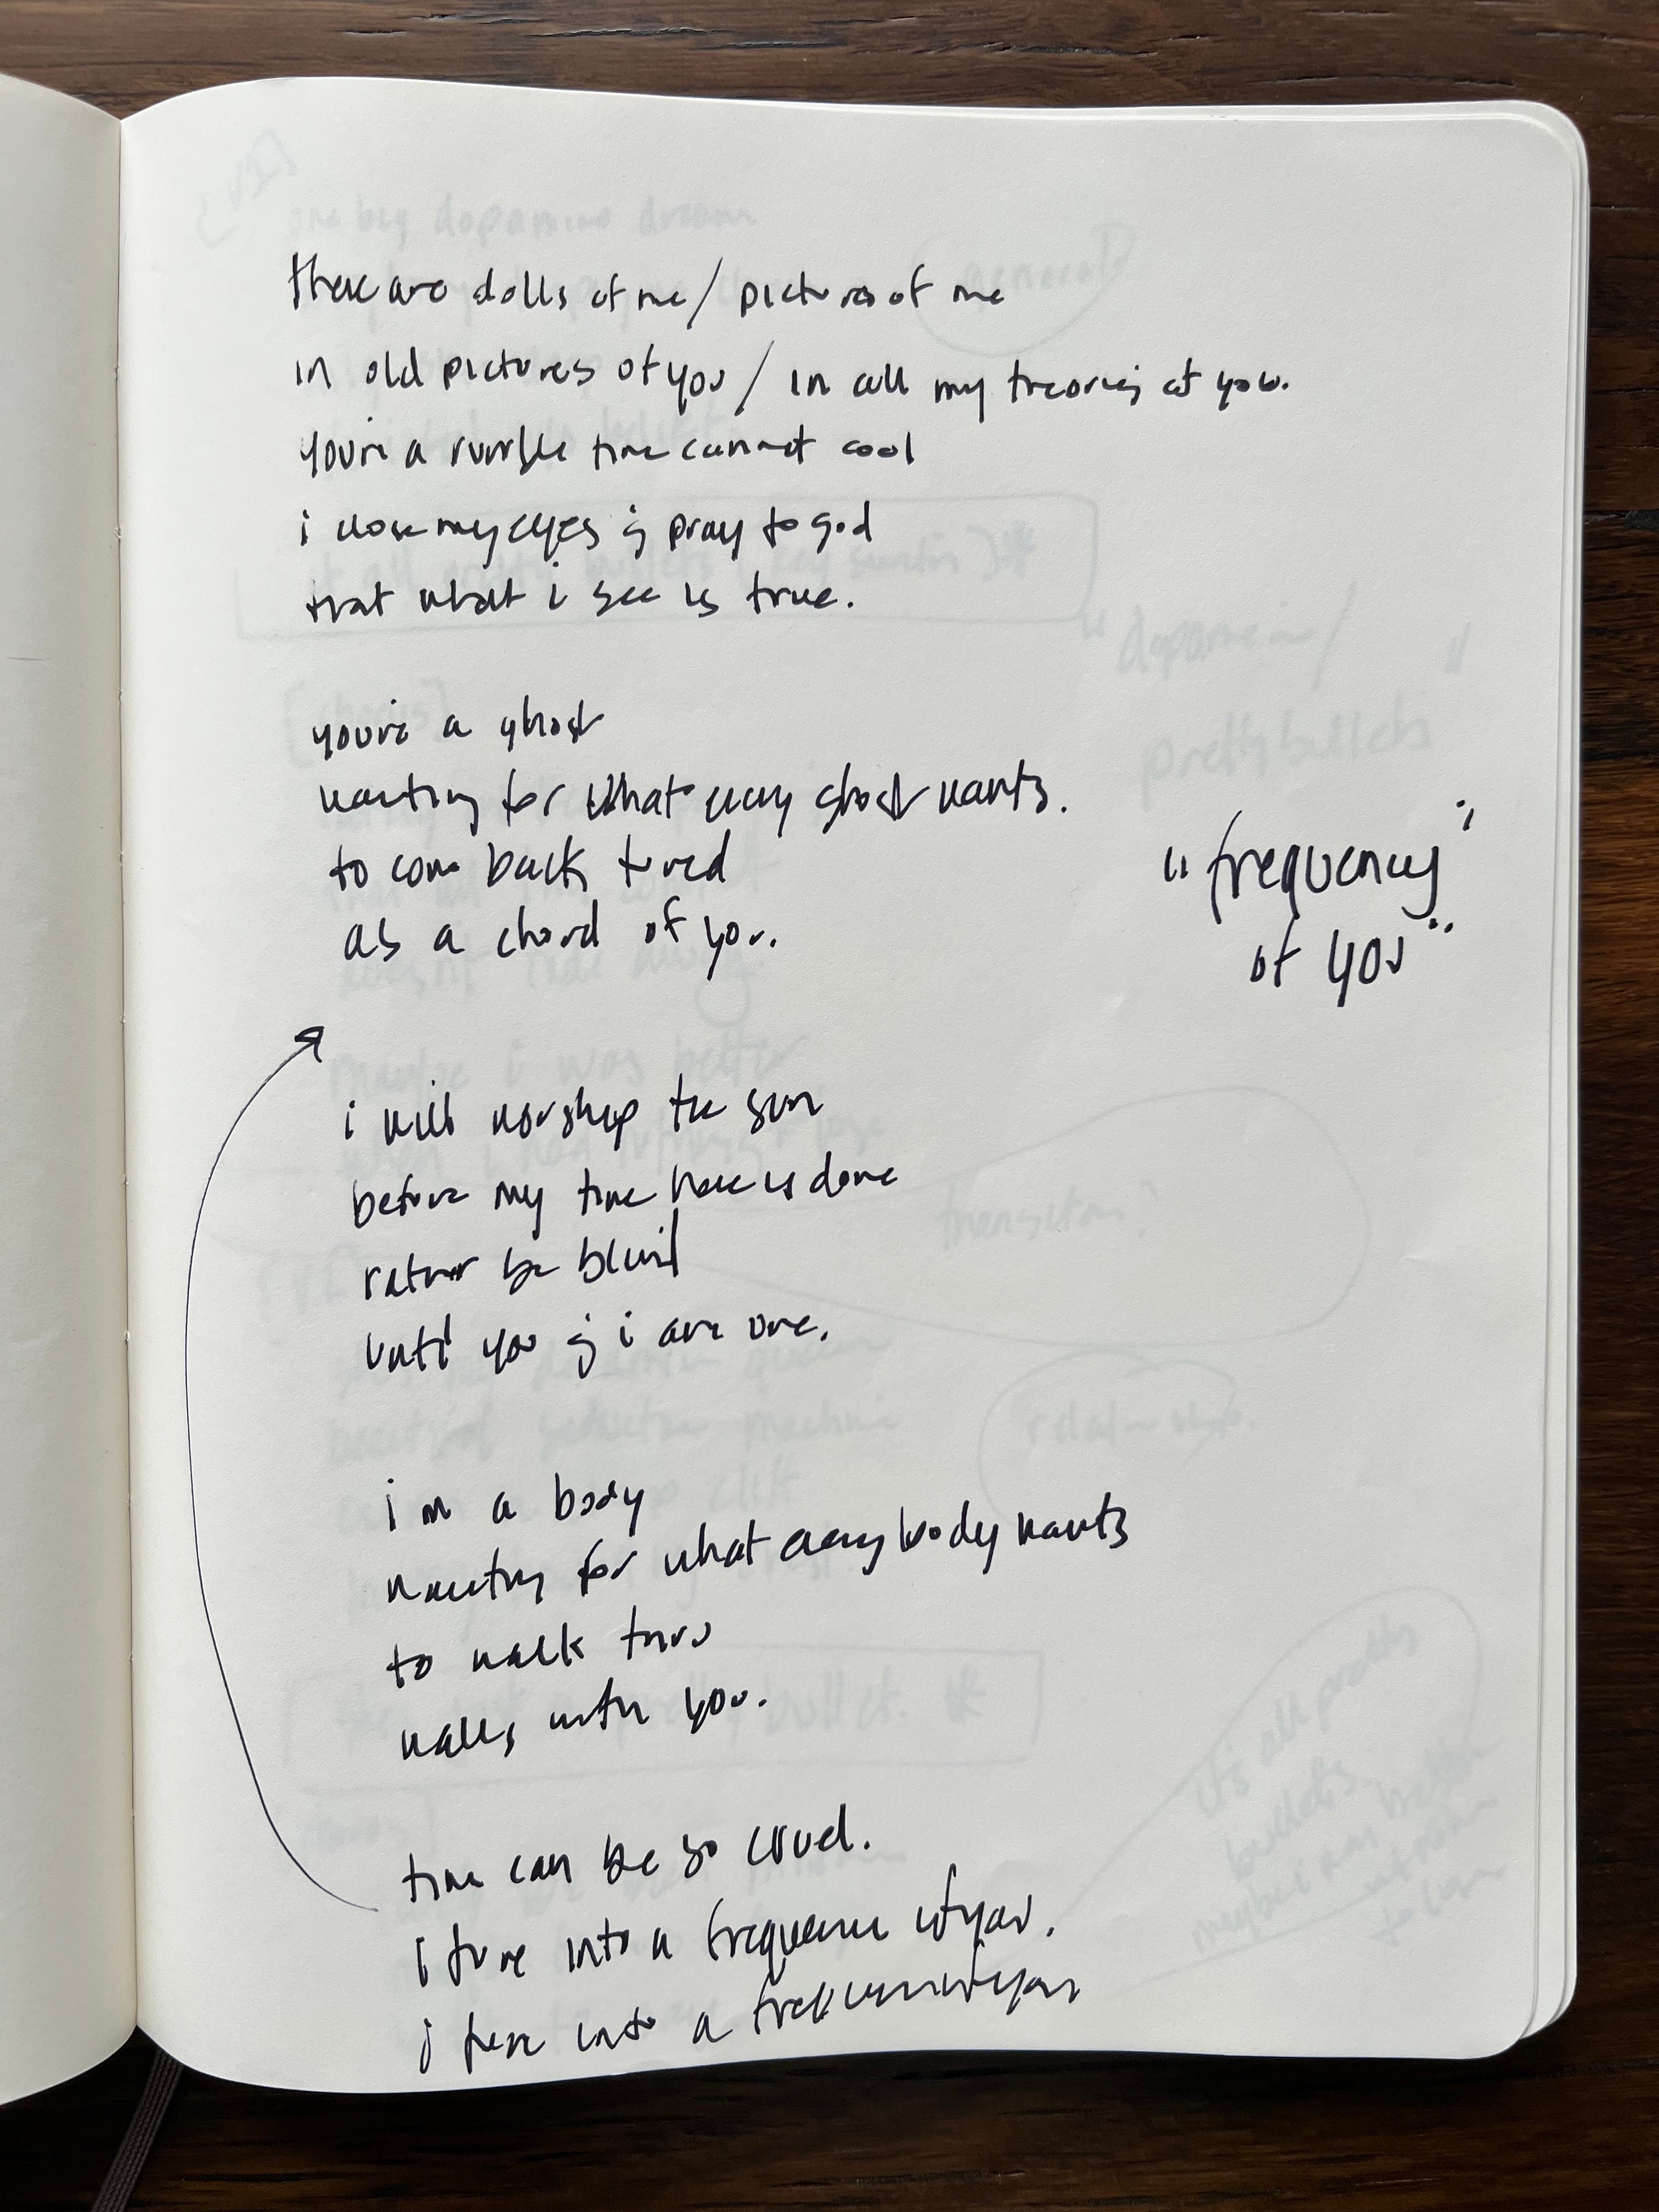 there are dolls of me / pictures of me
in old pictures of you / in all my theories of you.
you're a time cannot cool
i close my eyes & pray to god
that what i see is true.
you're a ghost
waiting for what every ghost wants.
to come back tuned
as a chord of you.
"frequency
of you"
i will worship the sun
before my time here is done
rather be blind
until you & i are one.
i'm a body
waiting for what every body wants
to walk thru
walls with you.
time can be so cruel.
i tune into a frequency of you.
i tune into a frequency of you